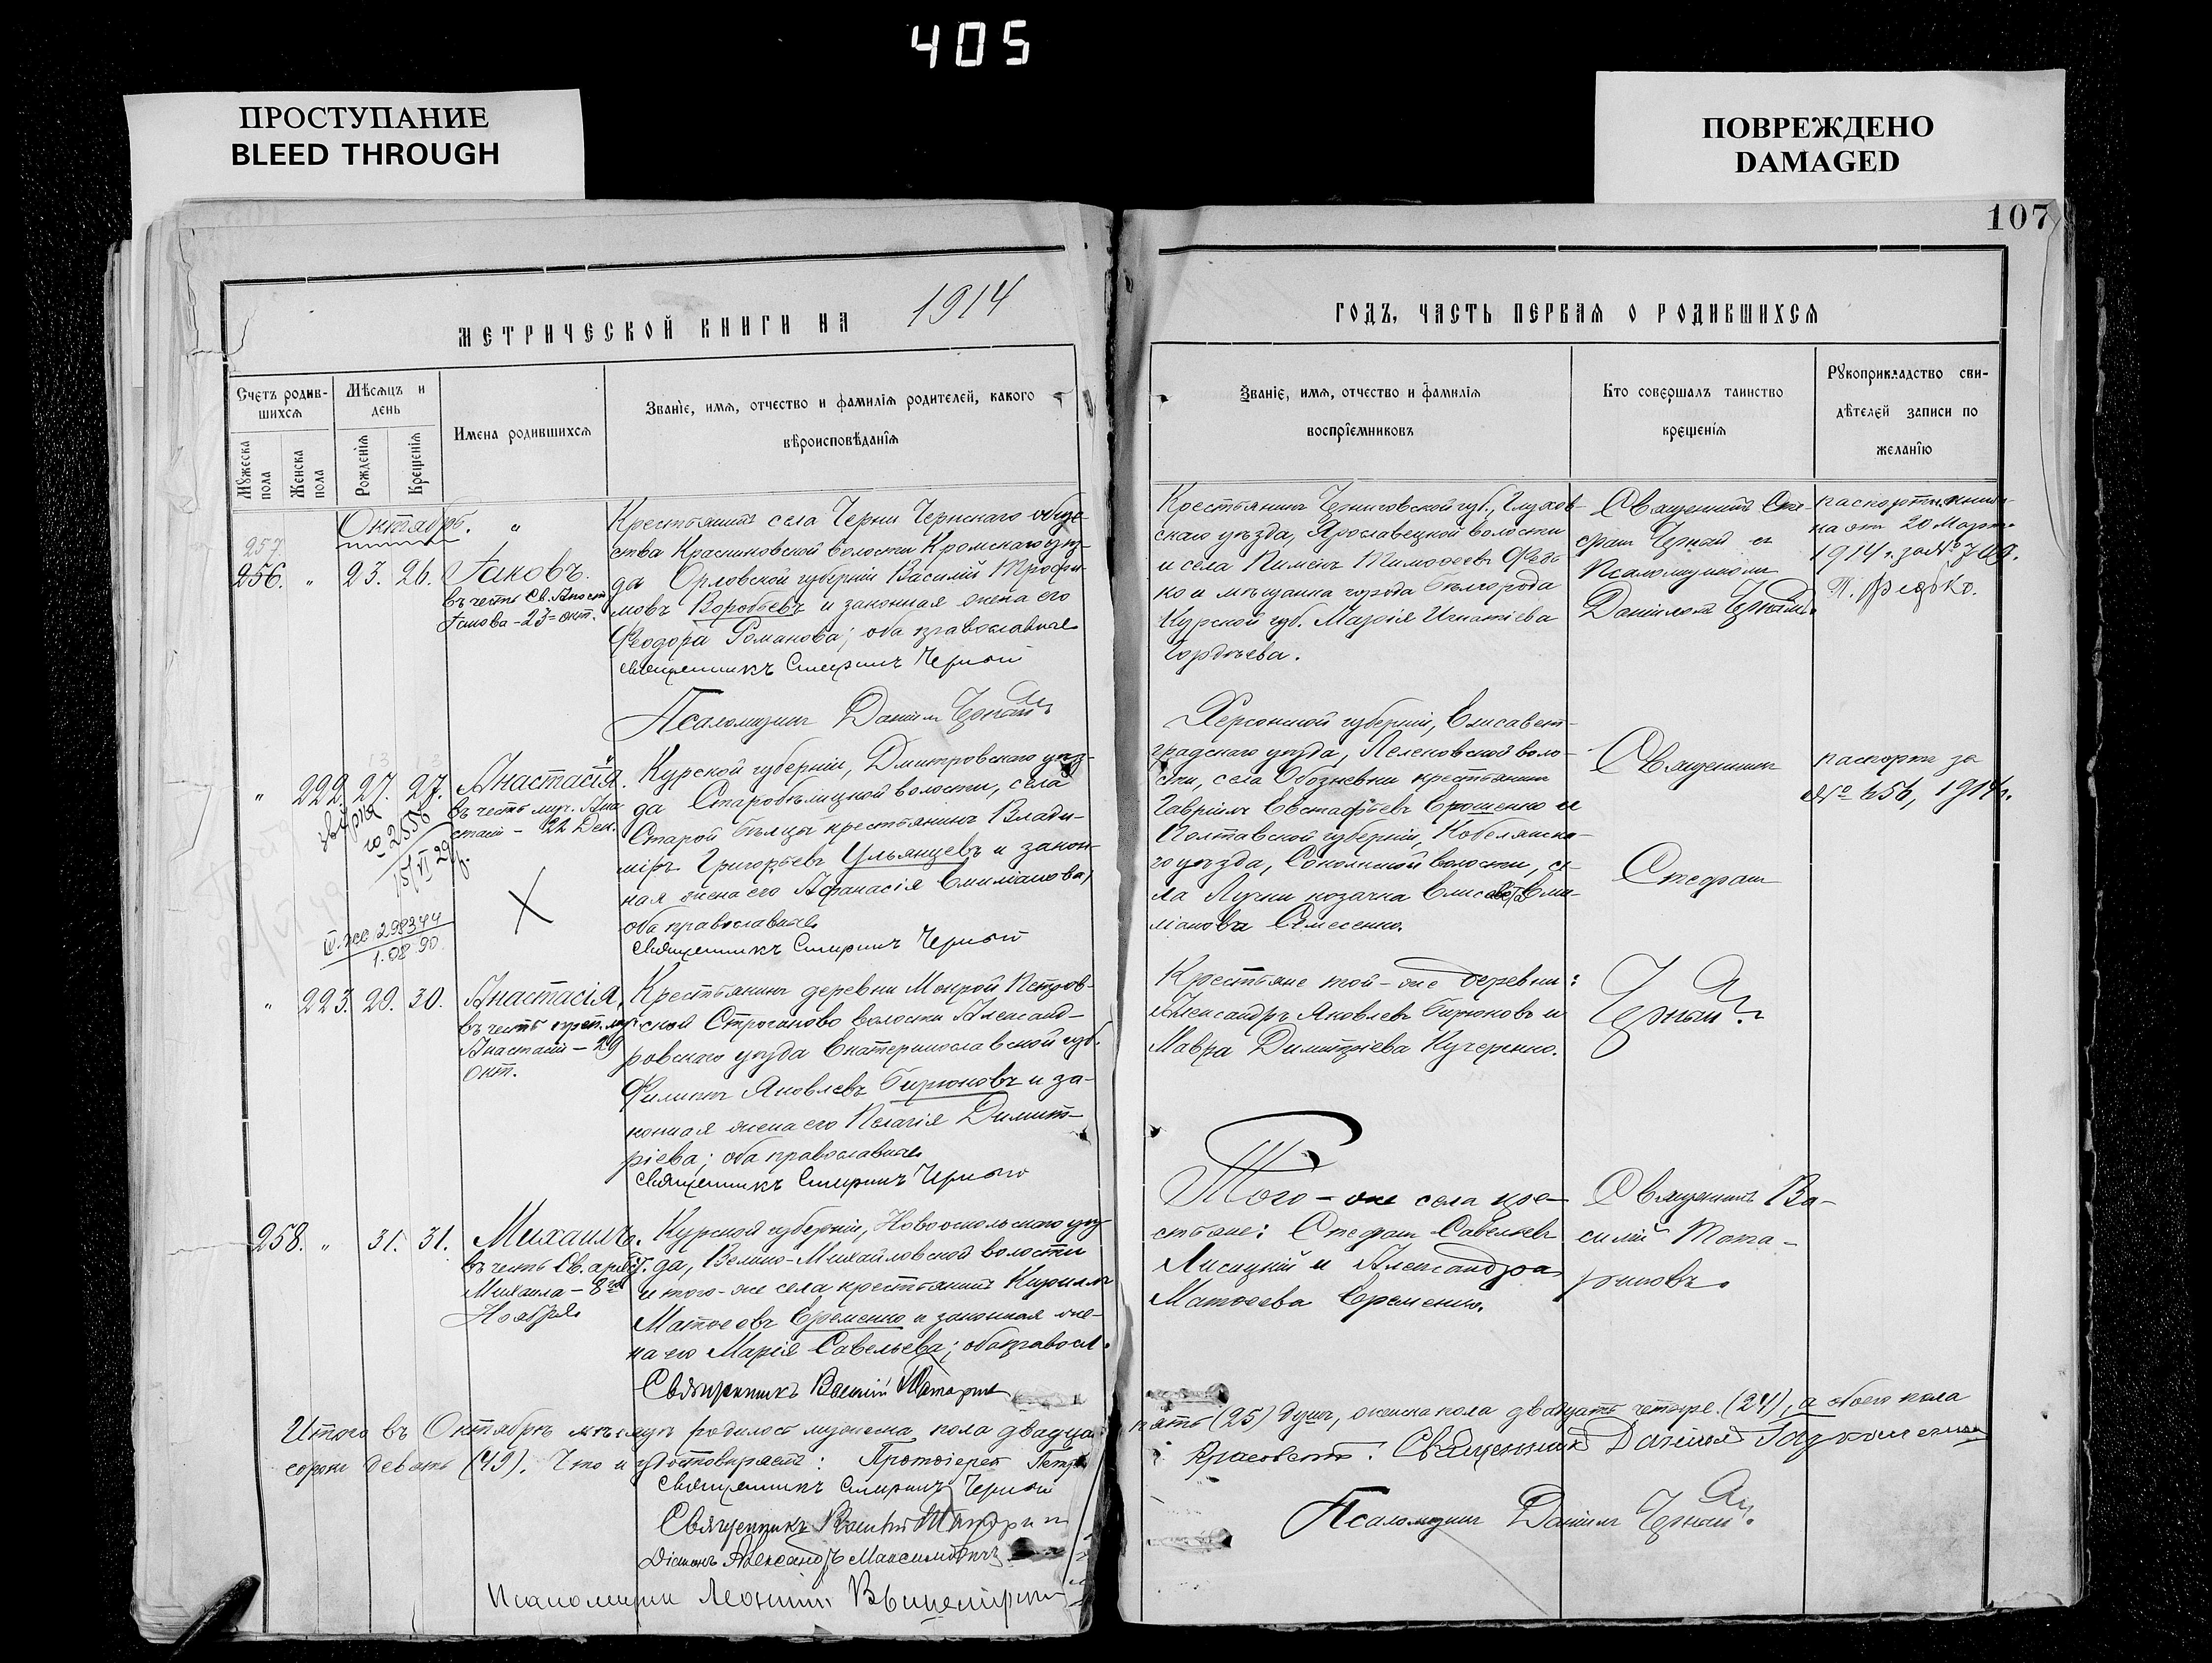 405
ПРОСТУПАНИЕ
BLEED THROUGH
ПОВРЕЖДЕНО
DAMAGED
107
МЕТРИЧЕСКОЙ КНИГИ НА 1914
ГОДЪ, ЧАСТЬ ПЕРВАЯ О РОДИВШИХСЯ
Счетъ родив-
шихся
Мѣсяцъ и
день
Мужеска
пола
Женска
пола
Рожденія
Крещенія
Имена родившихся
Званіе, имя, отчество и фамилія родителей, какого
вѣроисповѣданія
Званіе, имя, отчество и фамилія
воспріемниковъ
Кто совершалъ таинство
крещенія
Рукоприкладство сви-
дѣтелей записи по
желанію
Октябрь.
257.
256. „ 23. 26.
Іаковъ.
въ честь Св. Апост.
Іакова - 23 окт.
Крестьянинъ села Черни Чернскаго обще-
ства Красниковской волости Кромскаго уѣз-
да Орловской губерніи Василій Трофи-
мовъ Воробьевъ и законная жена его
Феодора Романова; оба православные
Священникъ Стефанъ Черный
Псаломщикъ Даніилъ Чернай
Крестьянинъ Черниговской губ., Глухов-
скаго уѣзда, Ярославецкой волости
и села Пименъ Тимофеевъ Федь-
ко и мѣщанка города Бѣлгорода
Курской губ. Марія Игнатіева
Гордѣева.
Священникъ Сте-
фанъ Черный съ
Псаломщикомъ
Даніиломъ
паспортн. книж-
ка отъ 20 Марта
1914 г. за №
П. Федько.
„ 222. 27. 27.
Анастасія.
въ честь муч. Ана-
стасіи - 22 Дек.
2556
15/VI 29 г.
298344
1.08.90.
Курской губерніи, Дмитровскаго уѣз-
да Старобѣлицкой волости, села
Старой Бѣлицы крестьянинъ Влади-
міръ Григорьевъ Ульянцевъ и закон-
ная жена его Афанасія Емиліанова,
оба православные
Священникъ Стефанъ Черный
Херсонской губерніи, Елисавет-
градскаго уѣзда, воло-
сти, села Обозневки крестьянинъ
Гавріилъ Евстафьевъ Ерошенко и
Полтавской губерніи, Кобелякска-
го уѣзда, Сокольской волости, се-
ла Лучки козачка Елисавета Еми-
ліанова
Священникъ
Стефанъ
паспортъ за
№ 656, 1914 г.
„ 223. 29. 30.
Анастасія.
въ честь преп. муч.
Анастасіи - 29
Окт.
Крестьянинъ деревни Мокрой Петров-
ской Строганово волости Александ-
ровскаго уѣзда Екатеринославской губ.
Филиппъ Яковлевъ Бирюковъ и за-
конная жена его Пелагія Димит-
ріева; оба православные
Священникъ Стефанъ Черный
Крестьяне той-же деревни:
Александръ Яковлевъ Бирюковъ и
Мавра Димитріева Кучеренко.
258. „ 31. 31.
Михаилъ.
въ честь Св. арх.
Михаила - 8го
Ноября
Курской губерніи, Новооскольскаго уѣз-
да, Велико-Михайловской волости
и того-же села крестьянинъ Кириллъ
Матѳеевъ Еременко и законная же-
на его Марія Савельева; оба правосл.
Священникъ Василій Татарин
Того-же села кре-
стьяне: Стефанъ Савельевъ
Лисицкій и Александра
Матѳеева Еременко.
Священникъ Ва-
силій Тата-
риновъ.
Итого въ Октябрѣ мѣсяцѣ родилось мужеска пола двадцать пять (25) душъ, женска пола двадцать четыре (24), а обоего пола
сорокъ девять (49). Что и удостовѣряетъ: Протоіерей Петръ Красовскій. Священникъ Даніилъ
Священникъ Стефанъ Черный
Псаломщикъ Даніилъ Чернай
Священникъ Василій Татарин
Діаконъ Александръ Максимовичъ
Псаломщикъ Леонтій